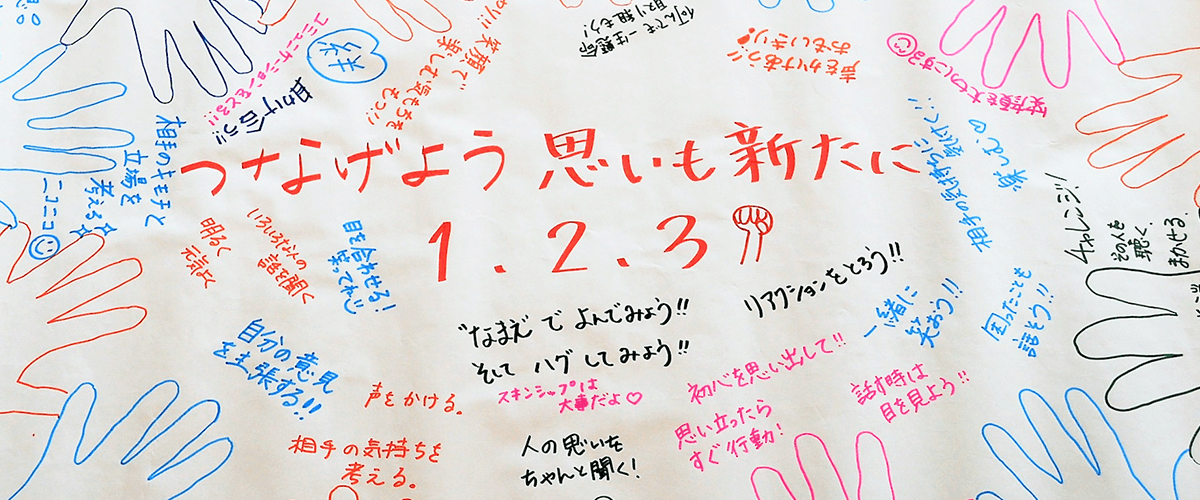 つなげよう 思いも新たに
1.2.3
コミュニケーションをとる!!
声かけ合う!!
絆
笑顔で
楽しむ気もちを
もつ!!
何んでも一生懸命
取り組もう!
声をかけあう!!
おもいきり!
笑顔を大切にする
相手のキモチと
立場を
考える☆
ニコニコ
明るく
元気よく
いろいろな人の
話を聞く
目を合わせる!
笑ってね
相手の気持ちに
楽しむ♡
チャレンジ!
その人を
聴く。
まかせる。
"なまえ"で よんでみよう!!
そして ハグ してみよう!!
リアクションをとろう!!
一緒に
笑おう!!
困ったことも
話そう!!
自分の意見
を主張する!!
声をかける。
スキンシップは
大事だよ♡
初心を思い出して!!
思い立ったら
すぐ行動!
話す時は
目を見よう!!
相手の気持ちを
考える。
人の思いを
ちゃんと聞く!